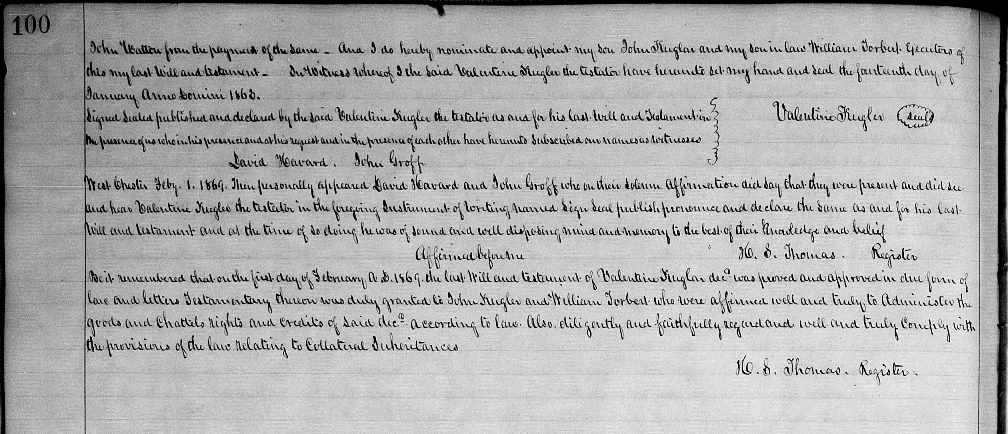 100
John Watton from the payment of the same – And I do hereby nominate and appoint my son John Kugler and my son in law William Torbert Executors of
this my last Will and testament – In Witness whereof I the said Valentine Kugler the testator have hereunto set my hand and seal the fourteenth day of
January Anno Domini 1863.
Signed Sealed published and declared by the said Valentine Kugler the testator as and for his last Will and Testament in
the presence of us who in his presence and at his request and in the presence of each other have hereunto Subscribed our names as witnesses
Valentine Kugler (seal)
David Havard. John Groff
West Chester Feby. 1. 1869. Then personally appeared David Havard and John Groff who on their solemn affirmation did say that they were present and did see
and hear Valentine Kugler the testator in the foregoing Instrument of Writing named Sign Seal publish pronounce and declare the same as and for his last
Will and testament and at the time of so doing he was of sound and well disposing mind and memory to the best of their Knowledge and belief
Affirmed before me H. S. Thomas. Register
Be it remembered that on the first day of February A.D. 1869. the last Will and testament of Valentine Kugler decd. was proved and approved in due form of
law and letters Testamentary thereon was duly granted to John Kugler and William Torbert who were affirmed well and truly to Administer the
goods and Chattels rights and credits of said decd. according to law. Also. diligently and faithfully regard and well and truly Comply with
the provisions of the law relating to Collateral Inheritances
H. S. Thomas. Register.